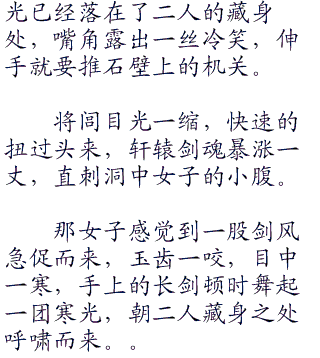 光已经落在了二人的藏身
处，嘴角露出一丝冷笑，伸
手就要推石壁上的机关。
将闾目光一缩，快速的
扭过头来，轩辕剑魂暴涨一
丈，直刺洞中女子的小腹。
那女子感觉到一股剑风
急促而来，玉齿一咬，目中
一寒，手上的长剑顿时舞起
一团寒光，朝二人藏身之处
呼啸而来。。